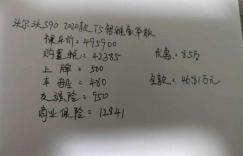 沃尔沃S90 2020款 T5智雅豪华版
裸车价=495900
购置税=42385 优惠:8.5万
上牌=500
车船=480 全款:46.81万元
交强险=950
商业保险=12841